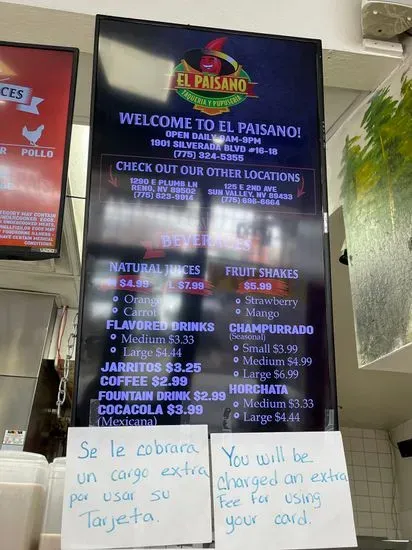 CES
POLLO
EL PAISANO
TAQUERIA Y PUPUSERIA
WELCOME TO EL PAISANO!
OPEN DAILY 9AM-9PM
1901 SILVERADA BLVD #16-18
(775) 324-5355
CHECK OUT OUR OTHER LOCATIONS
1290 E PLUMB LN
RENO, NV 89502
(775) 823-9914
125 E 2ND AVE
SUN VALLEY, NV 89433
(775) 698-6664
BEVERAGES
NATURAL JUICES
M $4.99 L $7.99
Orange
Carrot
FLAVORED DRINKS
Medium $3.33
Large $4.44
JARRITOS $3.25
COFFEE $2.99
FOUNTAIN DRINK $2.99
COCACOLA $3.99
(Mexicana)
FRUIT SHAKES
$5.99
Strawberry
Mango
CHAMPURRADO
(Seasonal)
Small $3.99
Medium $4.99
Large $6.99
HORCHATA
Medium $3.33
Large $4.44
Se le cobrara
un cargo extra
por usar su
Tarjeta.
You will be
charged an extra
Fee for using
your card.